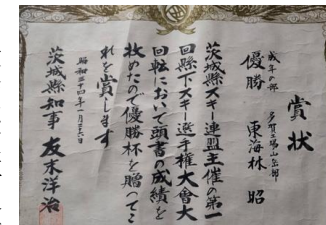 賞状
成年の部
多賀工場山岳部
優勝 東海林 昭
茨城縣スキー連盟主催の第一
回縣下スキー選手権大會大
回転において頭書の成績を
收めたので優勝杯を贈ってこ
れを賞します
昭和三十四年一月二十六日
茨城縣知事 友末洋治